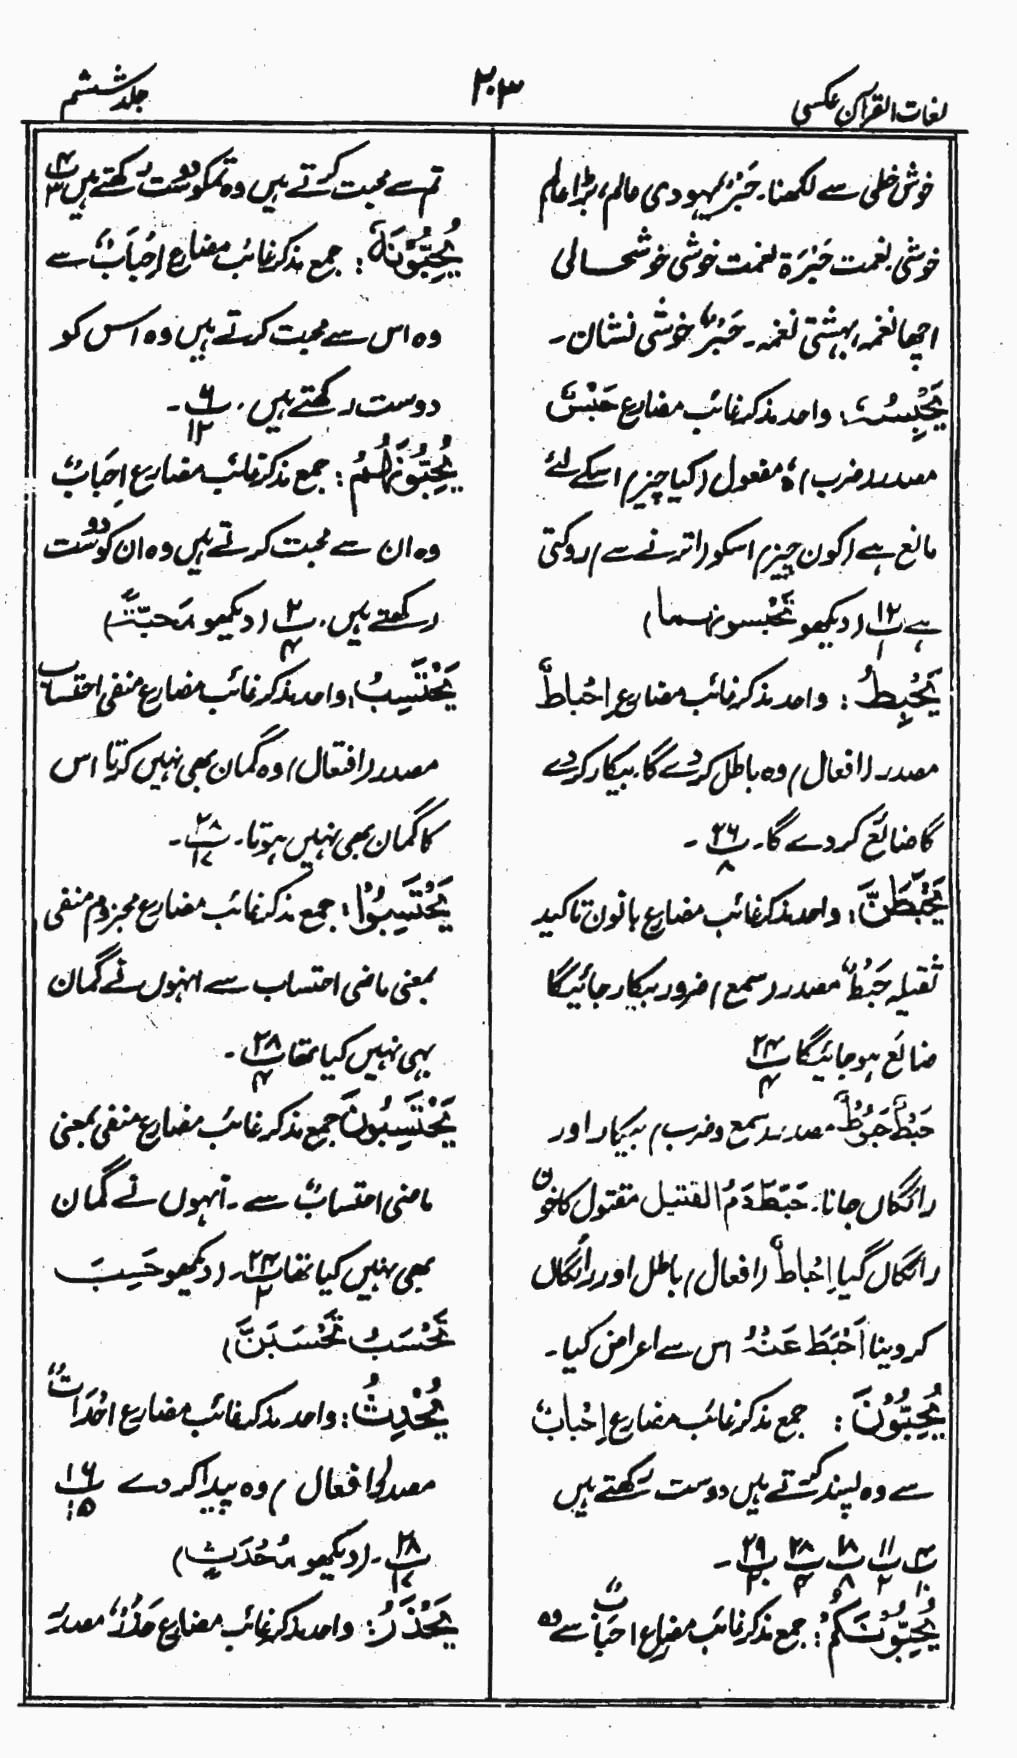 لغات القرآن عکسی
۲۰۳
جلد ششم
خوش خطی سے لکھنا۔ حَبْرٌ یہودی عالم، بڑا عالم
خوشی۔ نعمت حَبْرَۃ نعمت خوشی خوشحالی
اچھا نغمہ، بہشتی نغمہ۔ حَبْرٌ خوشی نشان۔
یَحْبِسُہٗ: واحد مذکر غائب مضارع حَبْسٌ
مصدر (ضرب) ہٗ مفعول (کیا چیز) اسکے لئے
مانع ہے (کون چیز) اسکو (اترنے سے) روکتی
ہے ۱۲/۱ (دیکھو تَحْبِسُونَہما)
یُحْبِطُ: واحد مذکر غائب مضارع اِحْبَاطٌ
مصدر (افعال) وہ باطل کردے گا۔ بیکار کردے
گا ضائع کردے گا۔ ۲۶/۸ ۔
یَحْبَطَنَّ: واحد مذکر غائب مضارع بانون تاکید
ثقیلہ حَبْطٌ مصدر (سمع) ضرور بیکار جائیگا
ضائع ہو جائیگا ۲۴/۴
حَبْطٌ حُبُوْطٌ مصدر (سمع و ضرب) بیکار اور
رائگاں جانا۔ حَبَطَ دَمُ القتیل مقتول کا خون
رائگاں گیا اِحْبَاطٌ (افعال) باطل اور رائگاں
کردینا اَحْبَطَ عَنْہُ اس سے اعراض کیا۔
یُحِبُّوْنَ: جمع مذکر غائب مضارع اِحْبَابٌ
سے وہ پسند کرتے ہیں دوست رکھتے ہیں
۴/۱۰ ۱۱/۲ ۱۸/۸ ۲۸/۴ ۲۹/۲۰ ۔
یُحِبُّوْنَکُمْ: جمع مذکر غائب مضارع احبابٌ سے وہ
تم سے محبت کرتے ہیں وہ تمکو دوست رکھتے ہیں ۴/۳
یُحِبُّوْنَہٗ: جمع مذکر غائب مضارع اِحْبَابٌ سے
وہ اس سے محبت کرتے ہیں وہ اس کو
دوست رکھتے ہیں۔ ۶/۱۲ ۔
یُحِبُّوْنَہُمْ: جمع مذکر غائب مضارع اِحْبَابٌ
وہ ان سے محبت کرتے ہیں وہ ان کو دوست
رکھتے ہیں۔ ۲/۴ (دیکھو مَحَبَّۃً)
یَحْتَسِبُ: واحد مذکر غائب مضارع منفی احتساب
مصدر (افتعال) وہ گمان بھی نہیں کرتا اس
کا گمان بھی نہیں ہوتا۔ ۲۸/۱۷ ۔
یَحْتَسِبُوْا: جمع مذکر غائب مضارع مجزوم منفی
بمعنی ماضی احتساب سے انہوں نے گمان
بھی نہیں کیا تھا ۲۸/۴ ۔
یَحْتَسِبُوْنَ جمع مذکر غائب مضارع منفی بمعنی
ماضی احتسابٌ سے۔ انہوں نے گمان
بھی نہیں کیا تھا ۲۴/۲ ۔ (دیکھو حَسِبَ
تَحْسَبُ تَحْسَبَنَّ)
یُحْدِثُ: واحد مذکر غائب مضارع اِحْدَاثٌ
مصدر (افعال) وہ پیدا کردے ۱۶/۱۵
۲۸/۱۷ ۔ (دیکھو مُحْدَثٍ)
یَحْذَرُ: واحد مذکر غائب مضارع حَذَرٌ مصدر